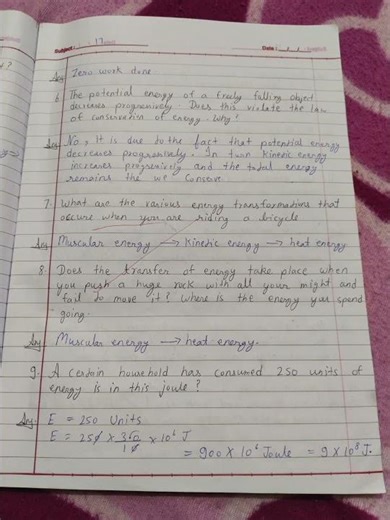 17
Ans Zero work done
6. The potential energy of a freely falling object
decreases progressively. Does this violate the law
of conservation of energy. Why?
Ans No, It is due to the fact that potential energy
decreases progressively. In turn kinetic energy
increases progressively and the total energy
remains the we Conserve.
7. What are the various energy transformations that
occure when you are riding a bicycle
Ans Muscular energy → kinetic energy → heat energy
8. Does the transfer of energy take place when
you push a huge rock with all your might and
fail to move it? Where is the energy you spend
going.
Ans Muscular energy → heat energy.
9. A certain household has consumed 250 units of
energy is in this joule?
Ans E = 250 Units
E = 250 × 360/10 × 10⁶ J
= 900 × 10⁶ Joule = 9 × 10⁸ J.